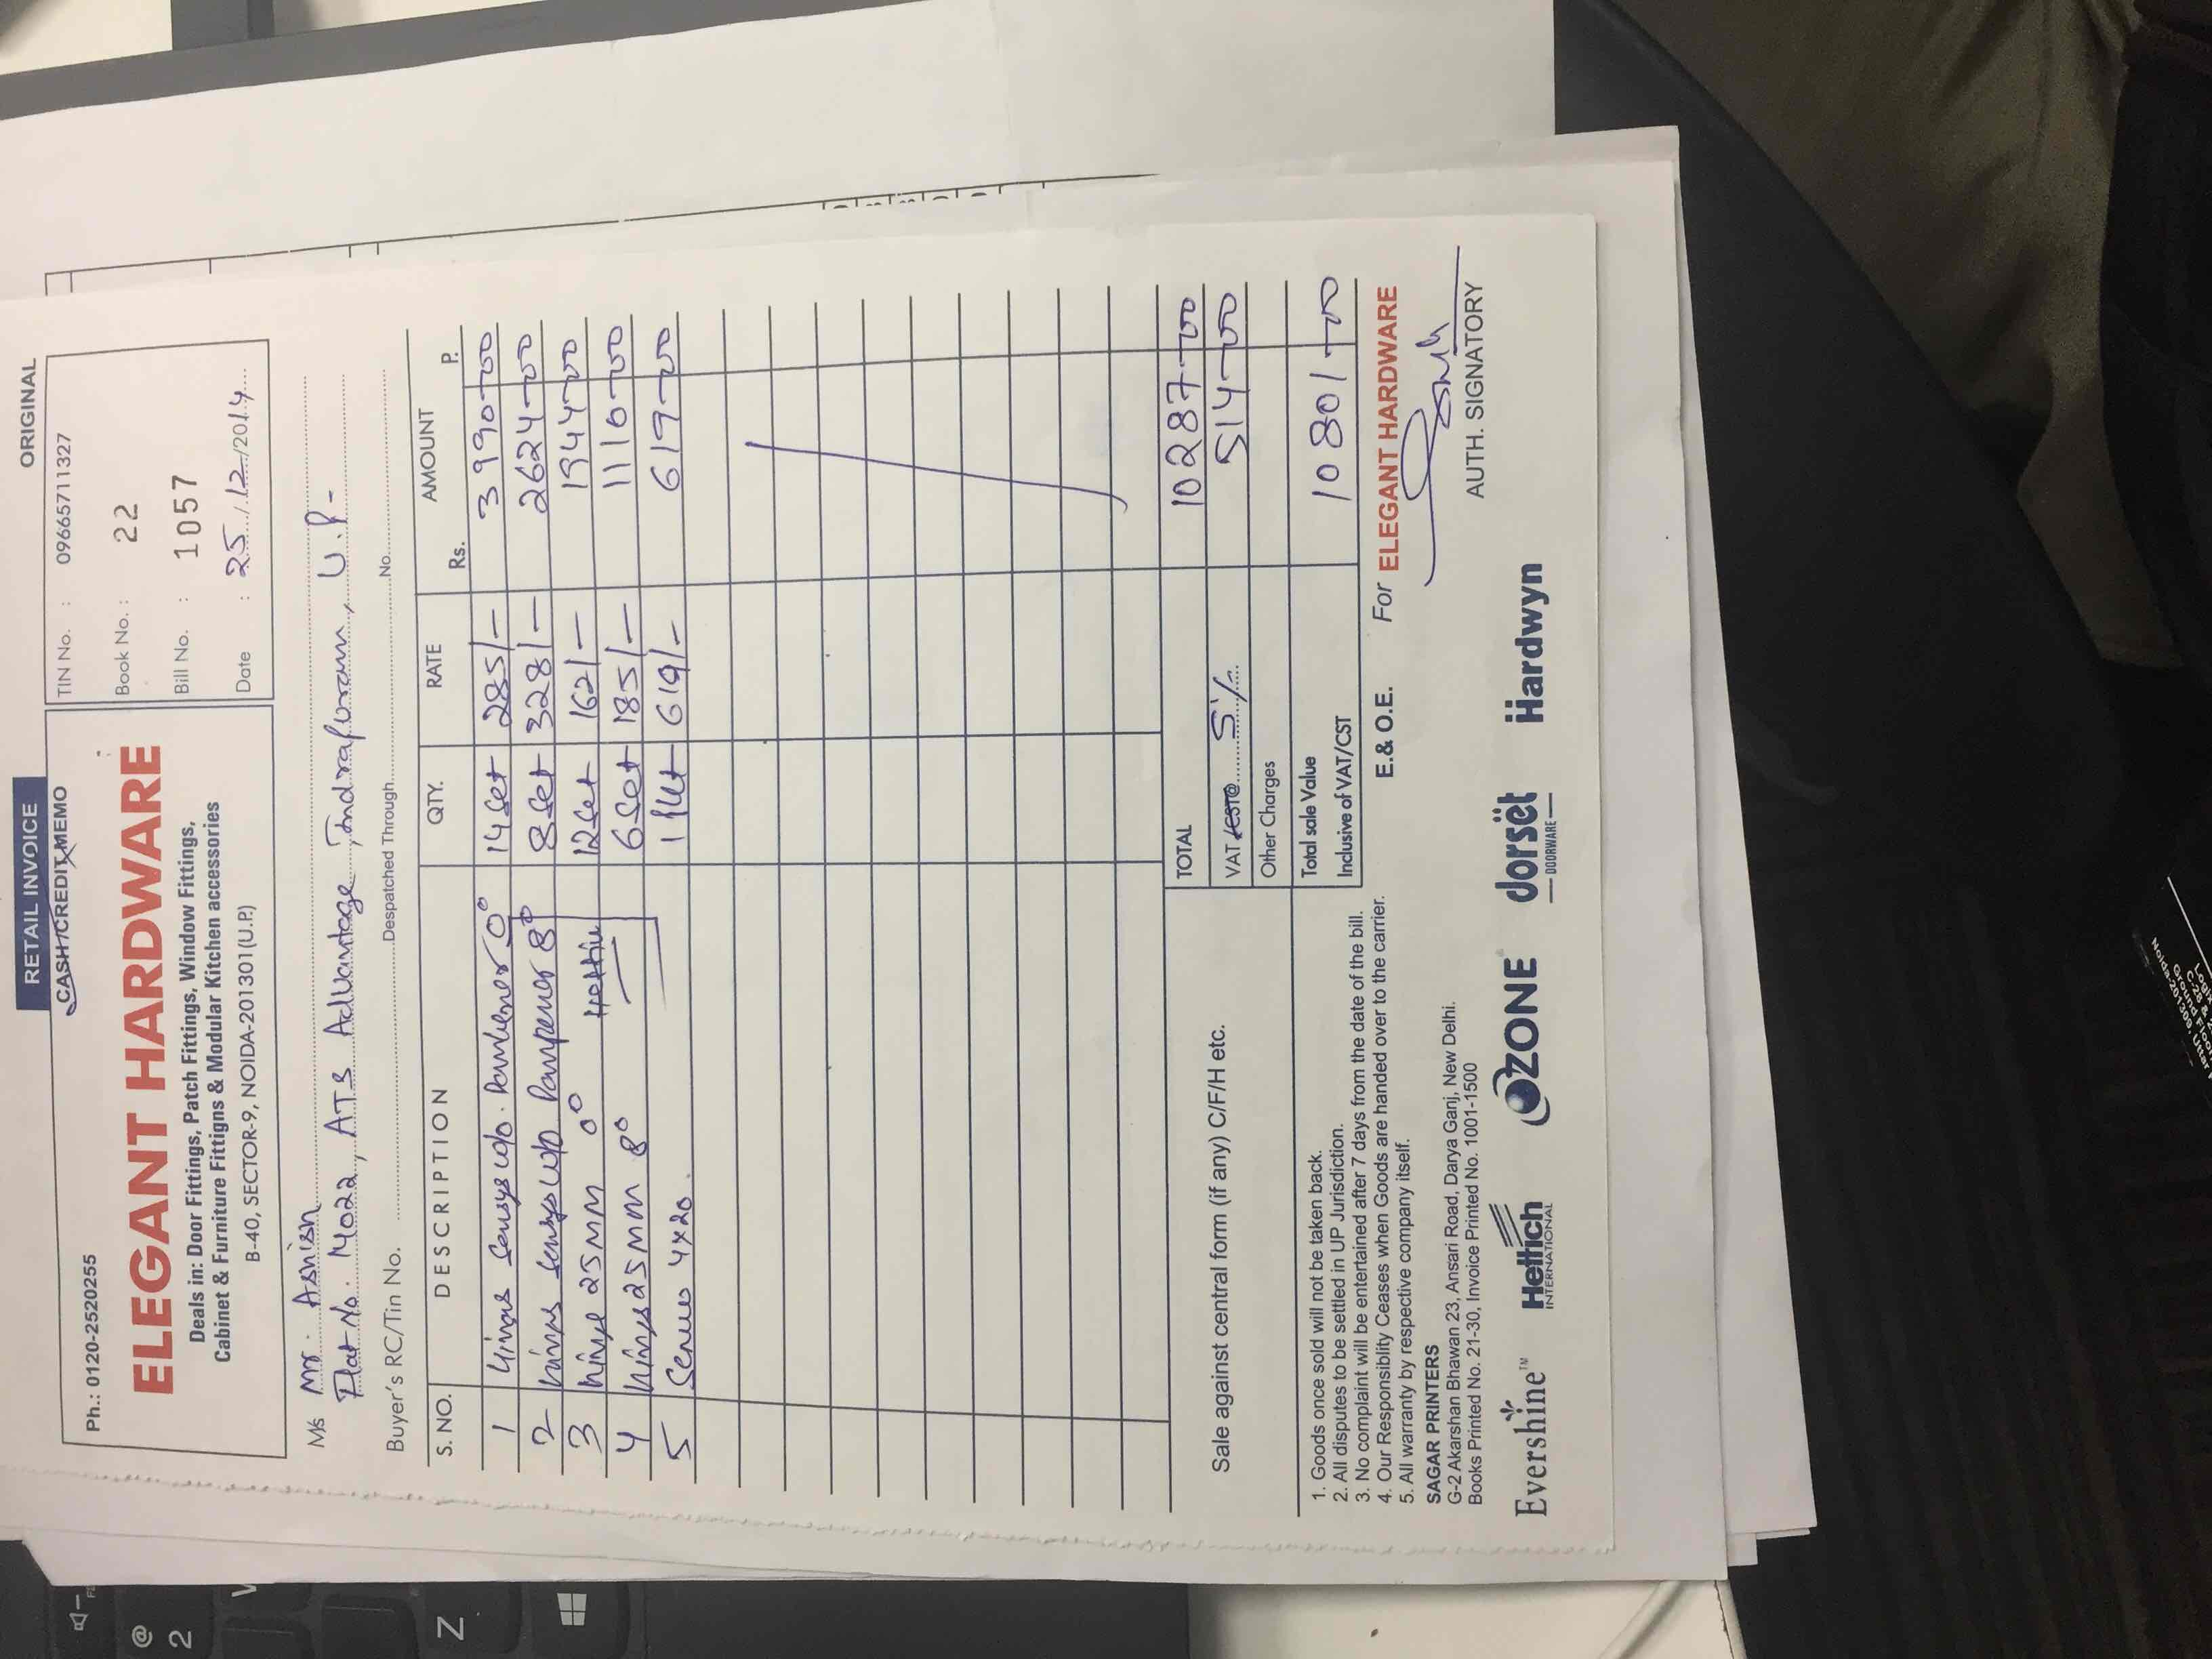 RETAIL INVOICE
ORIGINAL
CASH/CREDIT MEMO
Ph.: 0120-2520255
ELEGANT HARDWARE
Deals in: Door Fittings, Patch Fittings, Window Fittings,
Cabinet & Furniture Fittigns & Modular Kitchen accessories
B-40, SECTOR-9, NOIDA-201301(U.P.)
TIN No. : 09665711327
Book No. : 22
Bill No. : 1057
Date : 25/12/2014
M/s Mr. Ashish
Flat No. 14022, ATS Advantage, Indrapuram, U.P-
Buyer's RC/Tin No. Despatched Through No.
S. NO. DESCRIPTION QTY. RATE AMOUNT
Rs. P.
1 Sensys w/o 0° 14 Set 285/- 3990-00
2 Sensys w/o 8° 8 Set 328/- 2624-00
3 hinge 25MM 0° 12 Set 162/- 1944-00
4 25MM 8° 6 Set 185/- 1110-00
5 4x20 1 619/- 619-00
TOTAL 10287-00
Sale against central form (if any) C/F/H etc.
VAT/CST@ 5% 514-00
Other Charges
Total sale Value
Inclusive of VAT/CST 10801-00
1. Goods once sold will not be taken back.
2. All disputes to be settled in UP Jurisdiction.
3. No complaint will be entertained after 7 days from the date of the bill.
4. Our Responsiblity Ceases when Goods are handed over to the carrier.
5. All warranty by respective company itself.
E.& O.E. For ELEGANT HARDWARE
AUTH. SIGNATORY
SAGAR PRINTERS
G-2 Akarshan Bhawan 23, Ansari Road, Darya Ganj, New Delhi.
Books Printed No. 21-30, Invoice Printed No. 1001-1500
Evershine™ Hettich OZONE dorsët Hardwyn
INTERNATIONAL DOORWARE
@
2
Z